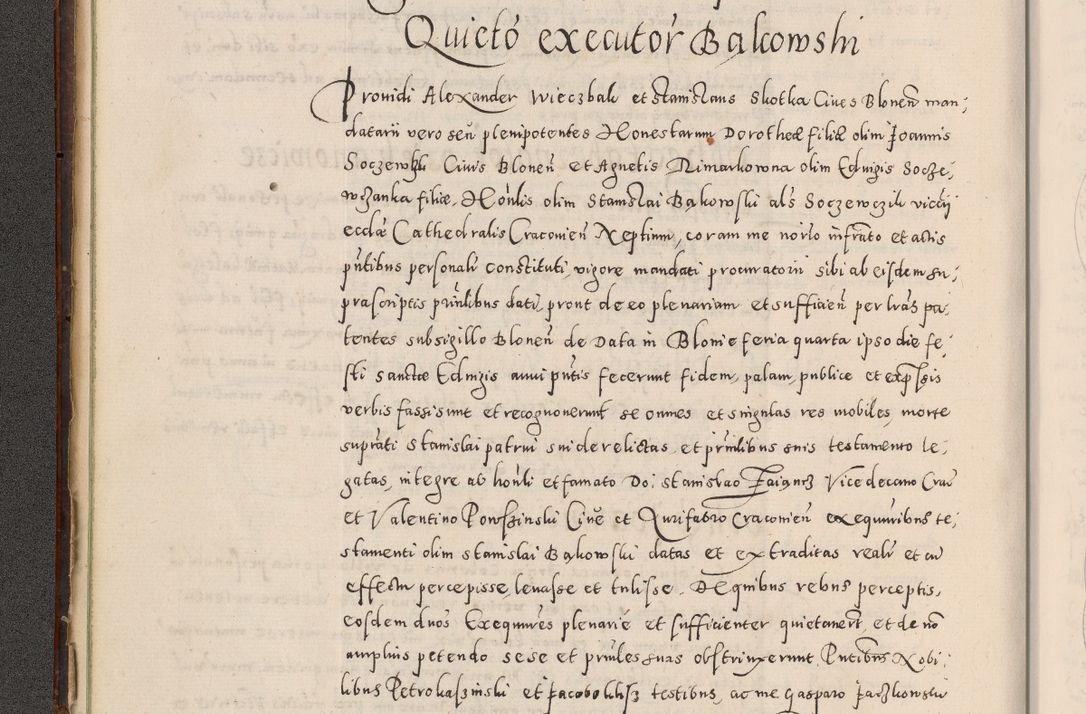 Quietō executōr Bąkowski
Prouidi Alexander Wieczbak et Stanislaus Skotka Ciues Blonen̄ man,
datarii vero seū plenipotentes Honestarum Dorotheæ filiæ olim Joannis
Soczewka Ciuis Blonen̄ et Agnetis Dimarkowna olim Eduigis Socze,
wczanka filiæ, Honlis olim Stanslai Bąkowski als Soczewczik vicarii
eccłæ Cathedralis Cracouien̄ Neptim, coram me norio infrato et actis
pn̄tibus personalr constituti, vigore mandati procuratorii sibi ab eisdem su,
prascriptis prin̄libus dati, prout de eo plenariam et sufficien̄ per lrās pa,
tentes sub sigillo Blonen̄ de Data in Blonie feria quarta ipso die fe,
sti sanctæ Eduigis anni pn̄tis fecerunt fidem, palam, publice et exp̄ssis
verbis fassi sunt et recognouerunt se omnes et singulas res mobiles, morte
suprāti Stanislai patrui sui derelictas, et prin̄libus suis testamento le,
gatas, integre ab honli et famato Do: Stanislao Vicedecano Crac
et Valentino Powszinski Ciūe et Aurifabro Cracouien̄ exequutribūs te,
stamenti olim Stanislai Bąkowski datas et extraditas realr et cū
effectu percepisse, leuasse et tulisse. De quibus rebus perceptis,
eosdem duos Exequutres plenarie et sufficienter quietauer̄t, et de nō
amplius petendo sese et prin̄les suas obstrinxerunt. Pntibus Nobi,
libus Petro et Jacobo testibus, ac me Gasparo